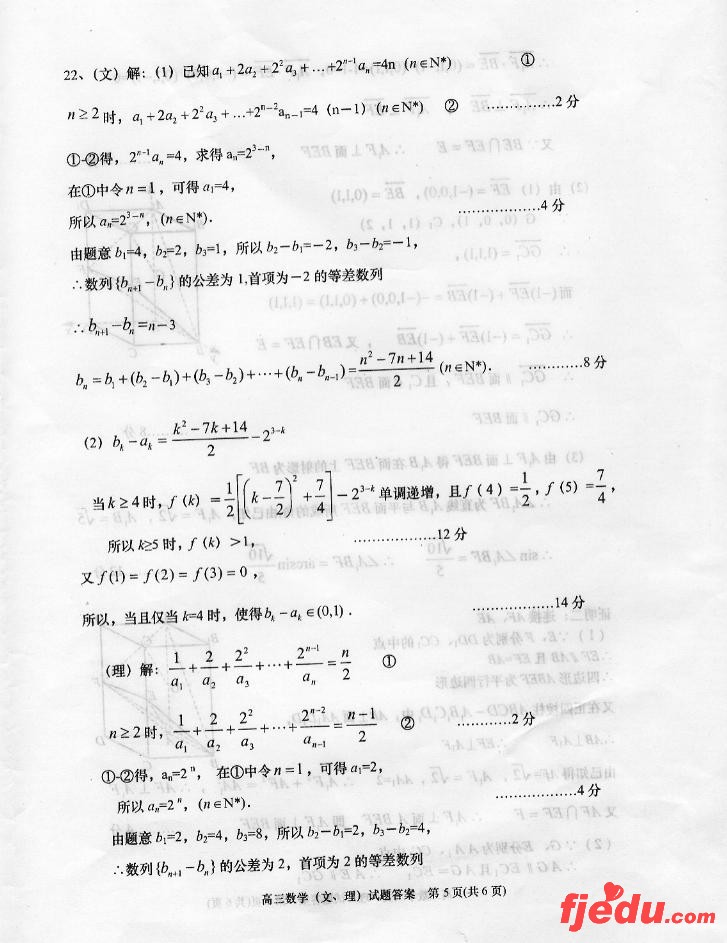 22、（文）解：（1）已知 a₁+2a₂+2²a₃+…+2ⁿ⁻¹aₙ=4n (n∈N*) ①
n≥2 时，a₁+2a₂+2²a₃+…+2ⁿ⁻²aₙ₋₁=4（n－1）(n∈N*) ② ……………2 分
①-②得，2ⁿ⁻¹aₙ=4，求得 aₙ=2³⁻ⁿ，
在①中令 n=1，可得 a₁=4，
所以 aₙ=2³⁻ⁿ，(n∈N*)． ………………4 分
由题意 b₁=4，b₂=2，b₃=1，所以 b₂－b₁=－2，b₃－b₂=－1，
∴数列{bₙ₊₁－bₙ}的公差为 1,首项为－2 的等差数列
∴bₙ₊₁－bₙ=n－3
bₙ=b₁+(b₂－b₁)+(b₃－b₂)+⋯+(bₙ－bₙ₋₁)=(n²－7n+14)/2 (n∈N*)． …………8 分
(2) bₖ－aₖ=(k²－7k+14)/2－2³⁻ᵏ
当 k≥4 时，f (k) =1/2[(k－7/2)²+7/4]－2³⁻ᵏ 单调递增，且 f（4）=1/2，f (5) =7/4，
所以 k≥5 时，f (k) >1， ………………12 分
又 f(1)=f(2)=f(3)=0，
所以，当且仅当 k=4 时，使得 bₖ－aₖ∈(0,1)． ………………14 分
（理）解：1/a₁+2/a₂+2²/a₃+⋯+2ⁿ⁻¹/aₙ=n/2 ①
n≥2 时，1/a₁+2/a₂+2²/a₃+⋯+2ⁿ⁻²/aₙ₋₁=(n－1)/2 ② …………2 分
①-②得，aₙ=2ⁿ， 在①中令 n=1，可得 a₁=2，
所以 aₙ=2ⁿ，(n∈N*)． ………………4 分
由题意 b₁=2，b₂=4，b₃=8，所以 b₂－b₁=2，b₃－b₂=4，
∴数列{bₙ₊₁－bₙ}的公差为 2，首项为 2 的等差数列
高三数学（文、理）试题答案 第 5 页(共 6 页)
fjedu.com